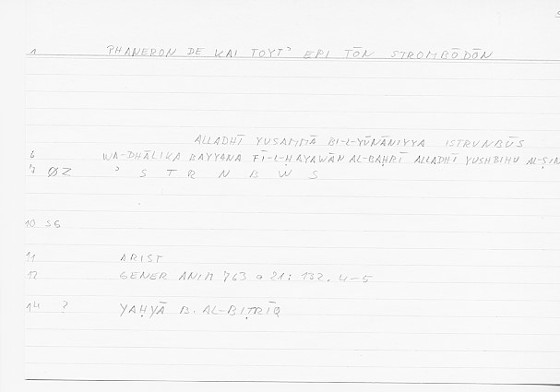 1 PHANERON DE KAI TOYT' EPI TŌN STROMBŌDŌN
ALLADHĪ YUSAMMĀ BI-L-YŪNĀNIYYA ISTRUNBŪS
6 WA-DHĀLIKA BAYYANA FĪ-L-ḤAYAWĀN AL-BAḤRĪ ALLADHĪ YUSHBIHU AL-ṢIN
7 ØZ ' S T R N B W S
10 SG
11 ARIST
12 GENER ANIM 763 a 21: 132. 4-5
14 ? YAḤYĀ B. AL-BIṬRĪQ